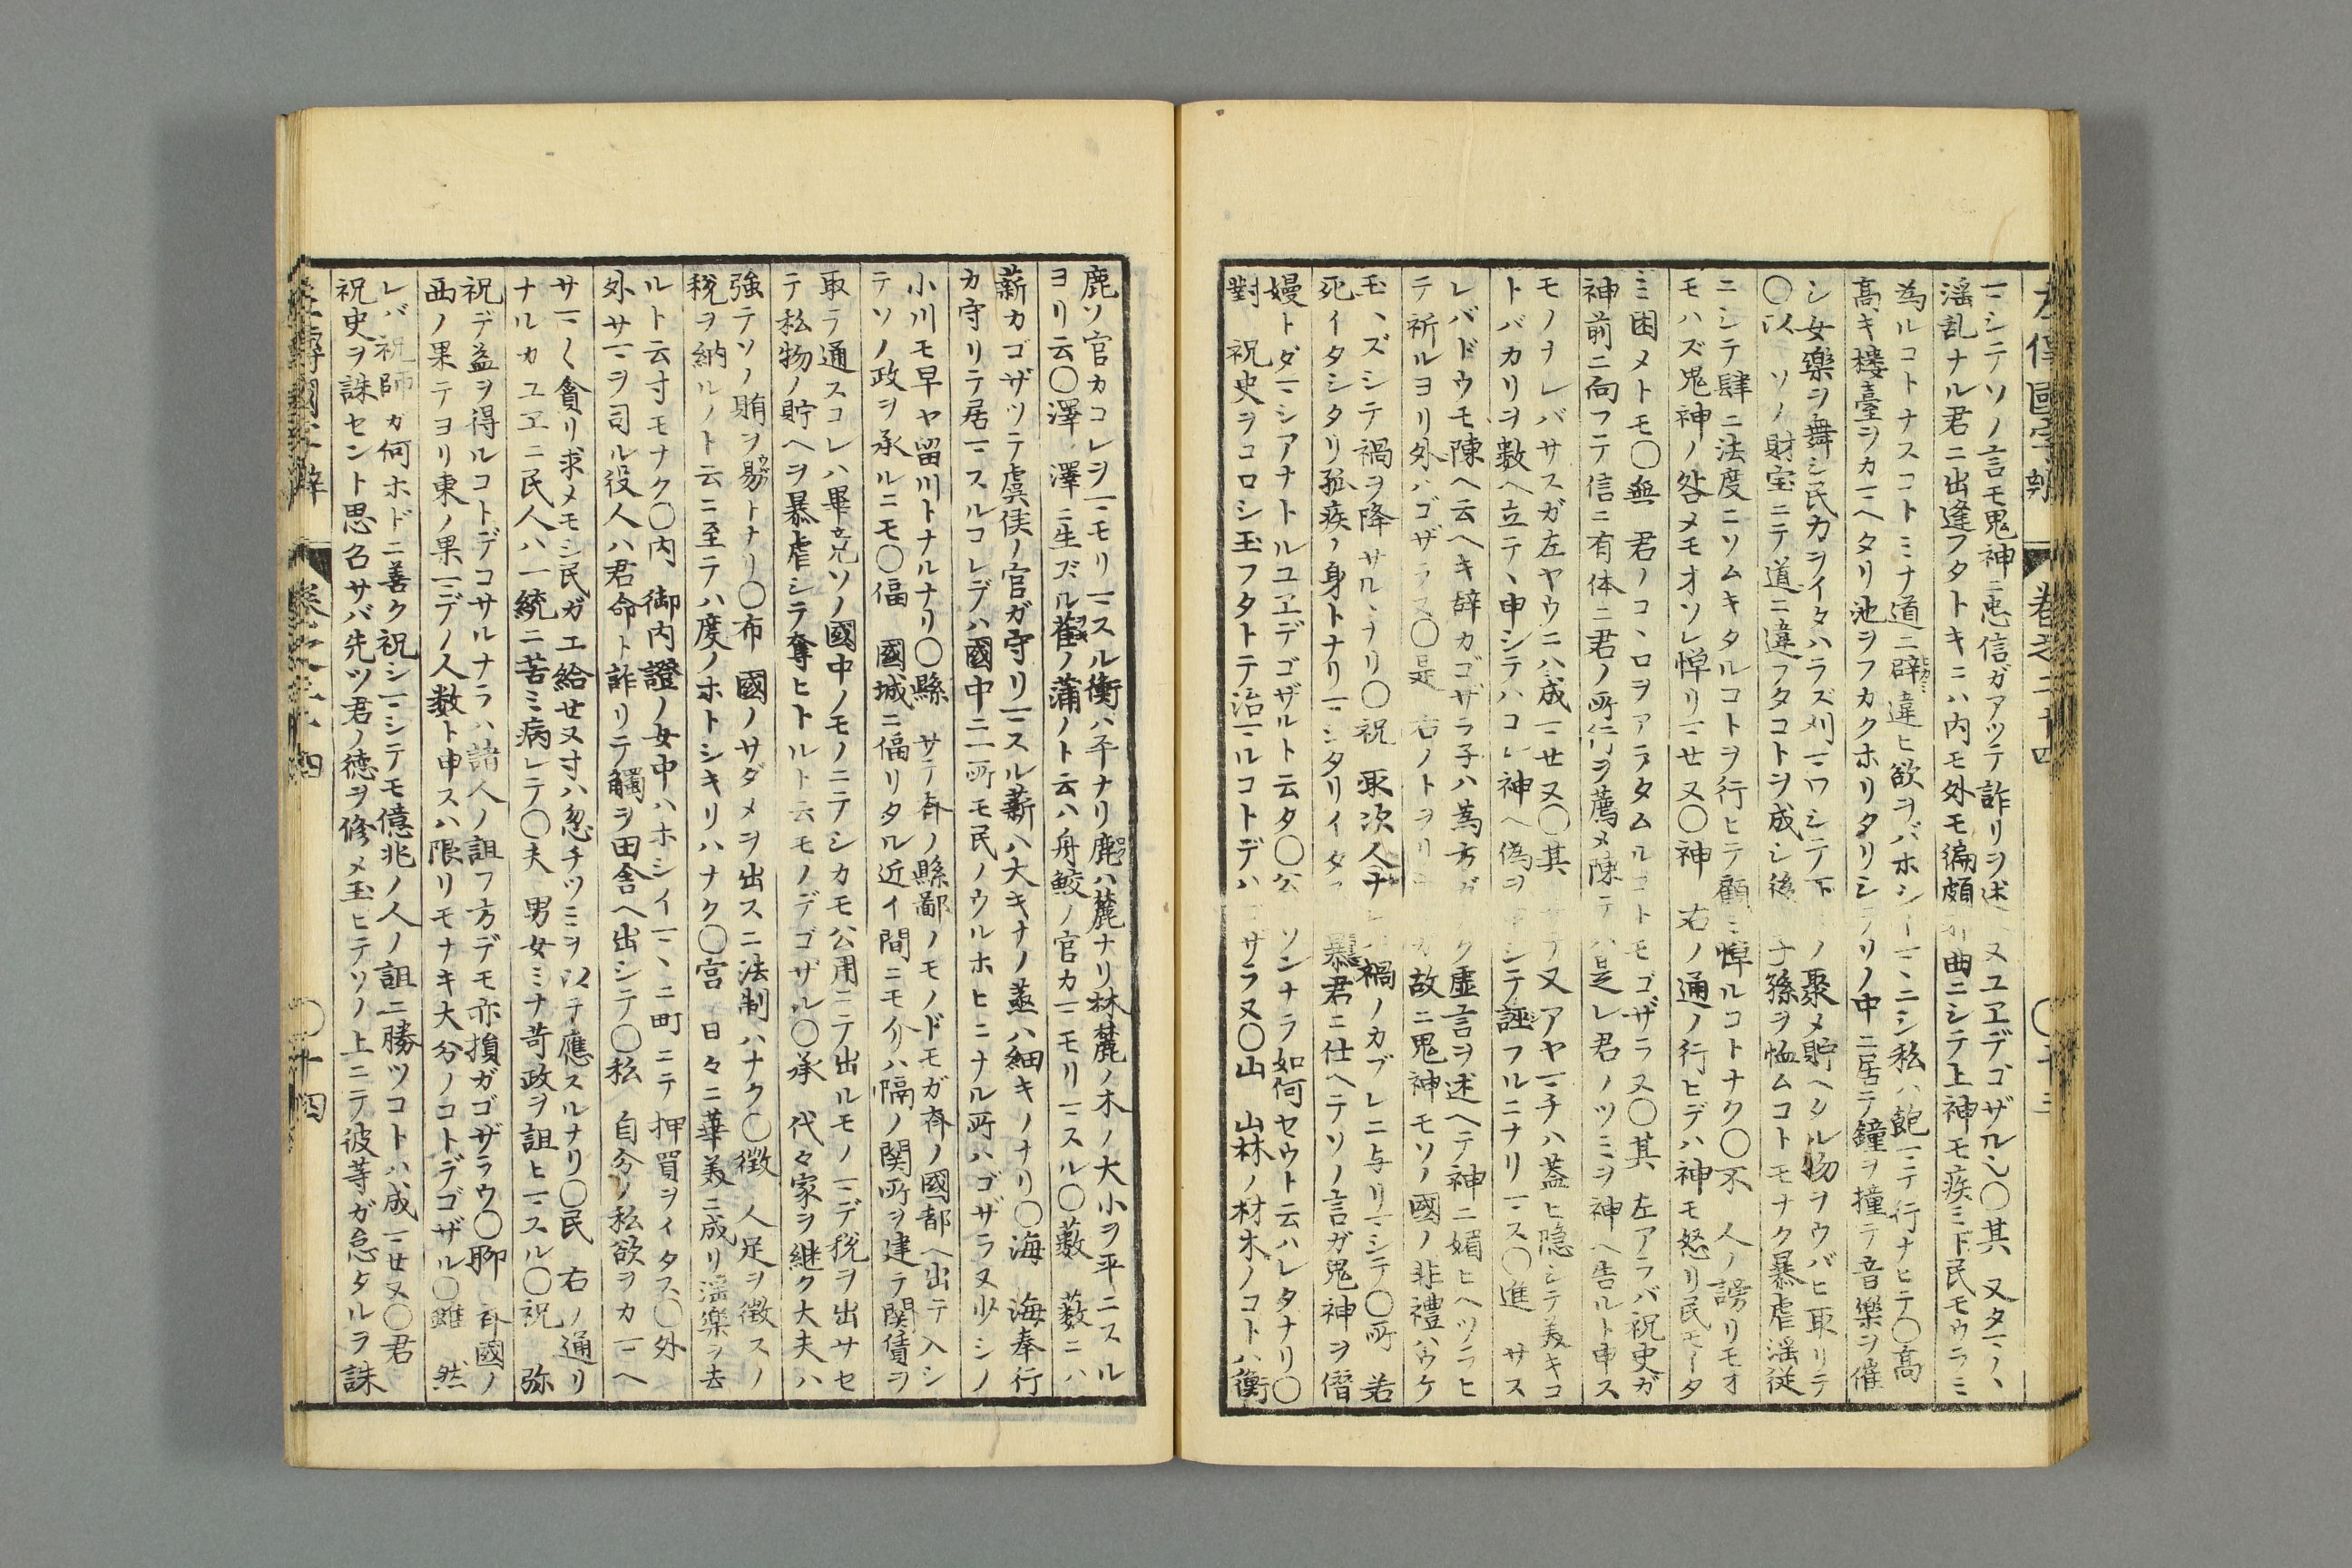 左傳國字辨 卷之二十四 〇十三
一シテソノ言モ鬼神ニ忠信ガアツテ詐リヲ述 ヌユヱデゴザル〇其 又タマ〱
淫乱ナル君ニ出逢フタトキニハ内モ外モ徧頗 曲ニシテ上神モ疾ミ下民モウラミ
為ルコトナスコトミナ道ニ辟違ヒ欲ヲバホシイマヽニシ私ハ飽マデ行ナヒテ〇高
高キ樓臺ヲカマヘタリ池ヲフカクホリタリシ リノ中ニ居テ鐘ヲ撞テ音樂ヲ催
シ女樂ヲ舞シ民力ヲイタハラズ刈マワシテ下 ノ聚メ貯ヘシル物ヲウバヒ取リテ
〇以 ソノ財宝ニテ道ニ違フタコトヲ成シ後 子孫ヲ恤ムコトモナク暴虐淫従
ニシテ肆ニ法度ニソムキタルコトヲ行ヒテ顧ミ憚ルコトナク〇不 人ノ謗リモオ
モハズ鬼神ノ咎メモオソレ憚リマセヌ〇神 右ノ通ノ行ヒデハ神モ怒リ民モータ
ミ困メトモ〇無 君ノコヽロヲアラタムルコトモゴザラヌ〇其 左アラバ祝史ガ
神前ニ向フテ信ニ有体ニ君ノ所行ヲ薦メ陳テハ是レ君ノツミヲ神ヘ告ルト申ス
モノナレバサスガ左ヤウニハ成マセヌ〇其 又アヤマチハ蓋ヒ隠シテ美キコ
トバカリヲ数ヘ立テヽ申シテハコレ神ヘ偽ヲ申シテ誣フルニナリマス〇進 サス
レバドウモ陳ヘ云ヘキ辞カゴザラ子ハ為方ガ ク虚言ヲ述ヘテ神ニ媚ヒヘツラヒ
テ祈ルヨリ外ハゴザラヌ〇是 右ノトヲリ 故ニ鬼神モソノ國ノ非禮ハウケ
玉ヽズシテ禍ヲ降サルヽナリ〇祝 取次人 禍ノカブレニ与リマシテ〇所 若
死イタシタリ孤疾ノ身トナリマシタリイタ 暴君ニ仕ヘテソノ言ガ鬼神ヲ僭
嫚トダマシアナトルユヱデゴザルト云タ〇公 ソンナラ如何セウト云ハレタナリ〇
對 祝史ヲコロシ玉フタトテ治マルコトデハゴザラヌ〇山 山林ノ材木ノコトハ衡
鹿ソ官カコレヲマモリマスル衡ハ平ナリ鹿ハ麓ナリ林麓ノ木ノ大小ヲ平ニスル
ヨリ云〇澤 澤ニ生ズル萑ノ蒲ノト云ハ舟鮫ノ官カマモリマスル〇藪 薮ニハ
薪カゴザツテ虞侯ノ官ガ守リマスル薪ハ大キナノ蒸ハ細キノナリ〇海 海奉行
カ守リテ居マスルコレデハ國中ニ一所モ民ノウルホヒニナル所ハゴザラヌ少シノ
小川モ早ヤ留川トナルナリ〇縣 サテ斉ノ縣鄙ノモノドモガ斉ノ國都ヘ出テ入シ
テソノ政ヲ承ルニモ〇偪 國城ニ偪リタル近イ間ニモ介ハ隔ノ関所ヲ建テ関賃ヲ
取ラ通スコレハ畢竟ソノ國中ノモノニテシカモ公用ニテ出ルモノマデ税ヲ出サセ
テ私物ノ貯ヘヲ暴虐シテ奪ヒトルト云モノデゴザル〇承 代々家ヲ継ク大夫ハ
強テソノ賄ヲ易トナリ〇布 國ノサダメヲ出スニ法制ハナク〇徴 人足ヲ徴スノ
税ヲ納ルノト云ニ至テハ度ノホトシキリハナク〇宮 日々ニ華美ニ成リ淫樂ヲ去
ルト云寸モナク〇内 御内證ノ女中ハホシイマヽニ町ニテ押買ヲイタス〇外
外サマヲ司ル役人ハ君命ト詐リテ觸ヲ田舎ヘ出シテ〇私 自分ノ私欲ヲカマヘ
サマ〱貪リ求メモシ民ガエ給セヌ寸ハ忽チツミヲ以テ應スルナリ〇民 右ノ通リ
ナルカユヱニ民人ハ一統ニ苦ミ病レテ〇夫 男女ミナ苛政ヲ詛ヒマスル〇祝 弥
祝デ益ヲ得ルコトデコサルナラハ諸人ノ詛フ方デモ亦損ガゴザラウ〇聊 斉國ノ
西ノ果テヨリ東ノ果マデノ人数ト申スハ限リモナキ大分ノコトデゴザル〇雖 然
レバ祝師ガ何ホドニ善ク祝シマシテモ億兆ノ人ノ詛ニ勝ツコトハ成マセヌ〇君
祝史ヲ誅セント思召サバ先ツ君ノ徳ヲ修メ玉ヒテソノ上ニテ彼等ガ怠タルヲ誅
左傳國字辨 卷之二十四 〇十四